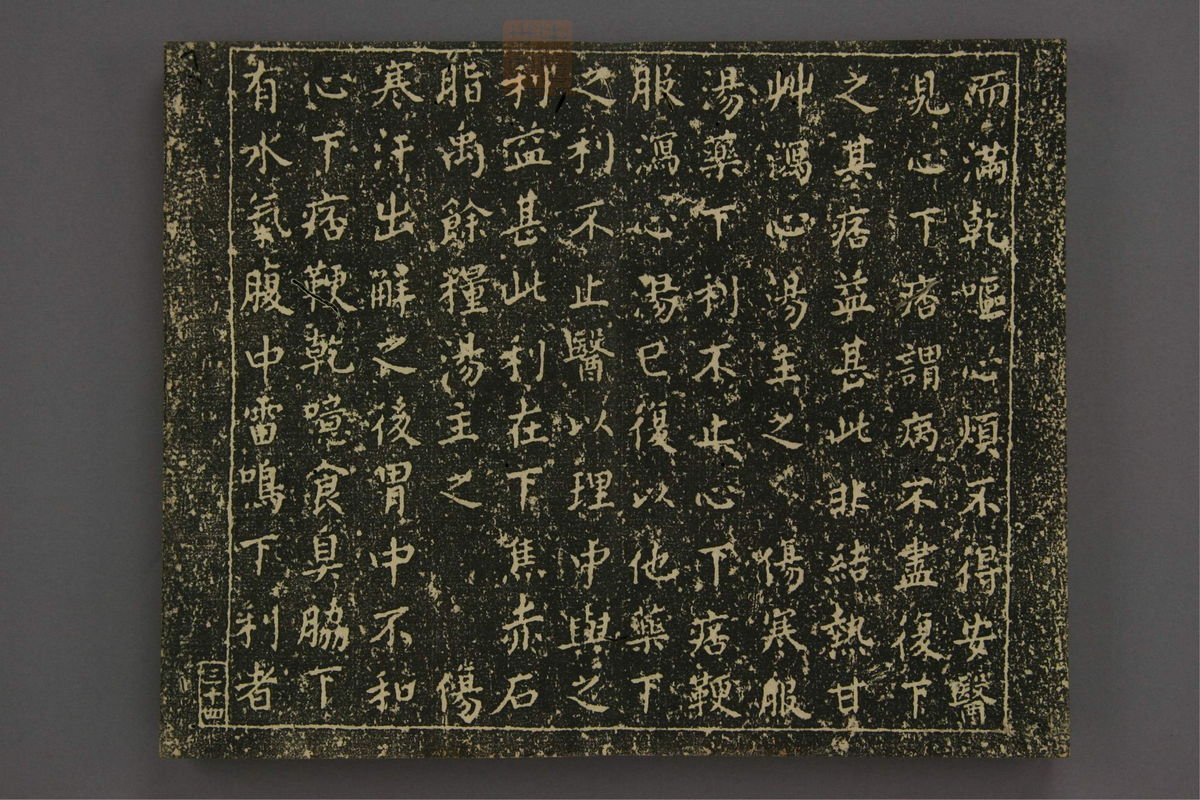 而滿乾嘔心煩不得安醫
見心下痞謂病不盡復下
之其痞益甚此非結熱甘
艸瀉心湯主之　傷寒服
湯藥下利不止心下痞鞕
服瀉心湯已復以他藥下
之利不止醫以理中與之
利益甚此利在下焦赤石
脂禹餘糧湯主之　　傷
寒汗出解之後胃中不和
心下痞鞕乾噫食臭脇下
有水氣腹中雷鳴下利者
三十四